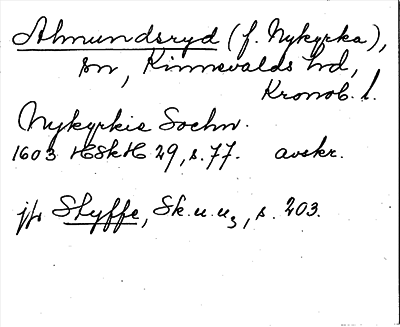 Almundsryd (f. Nykyrka),
sn, Kinnevalds hd,
Kronob. l.
Nykyrkie Sochn.
1603 HSkH 29, s. 77. avskr.
jfr Styffe, Sk. u. u3, s. 203.